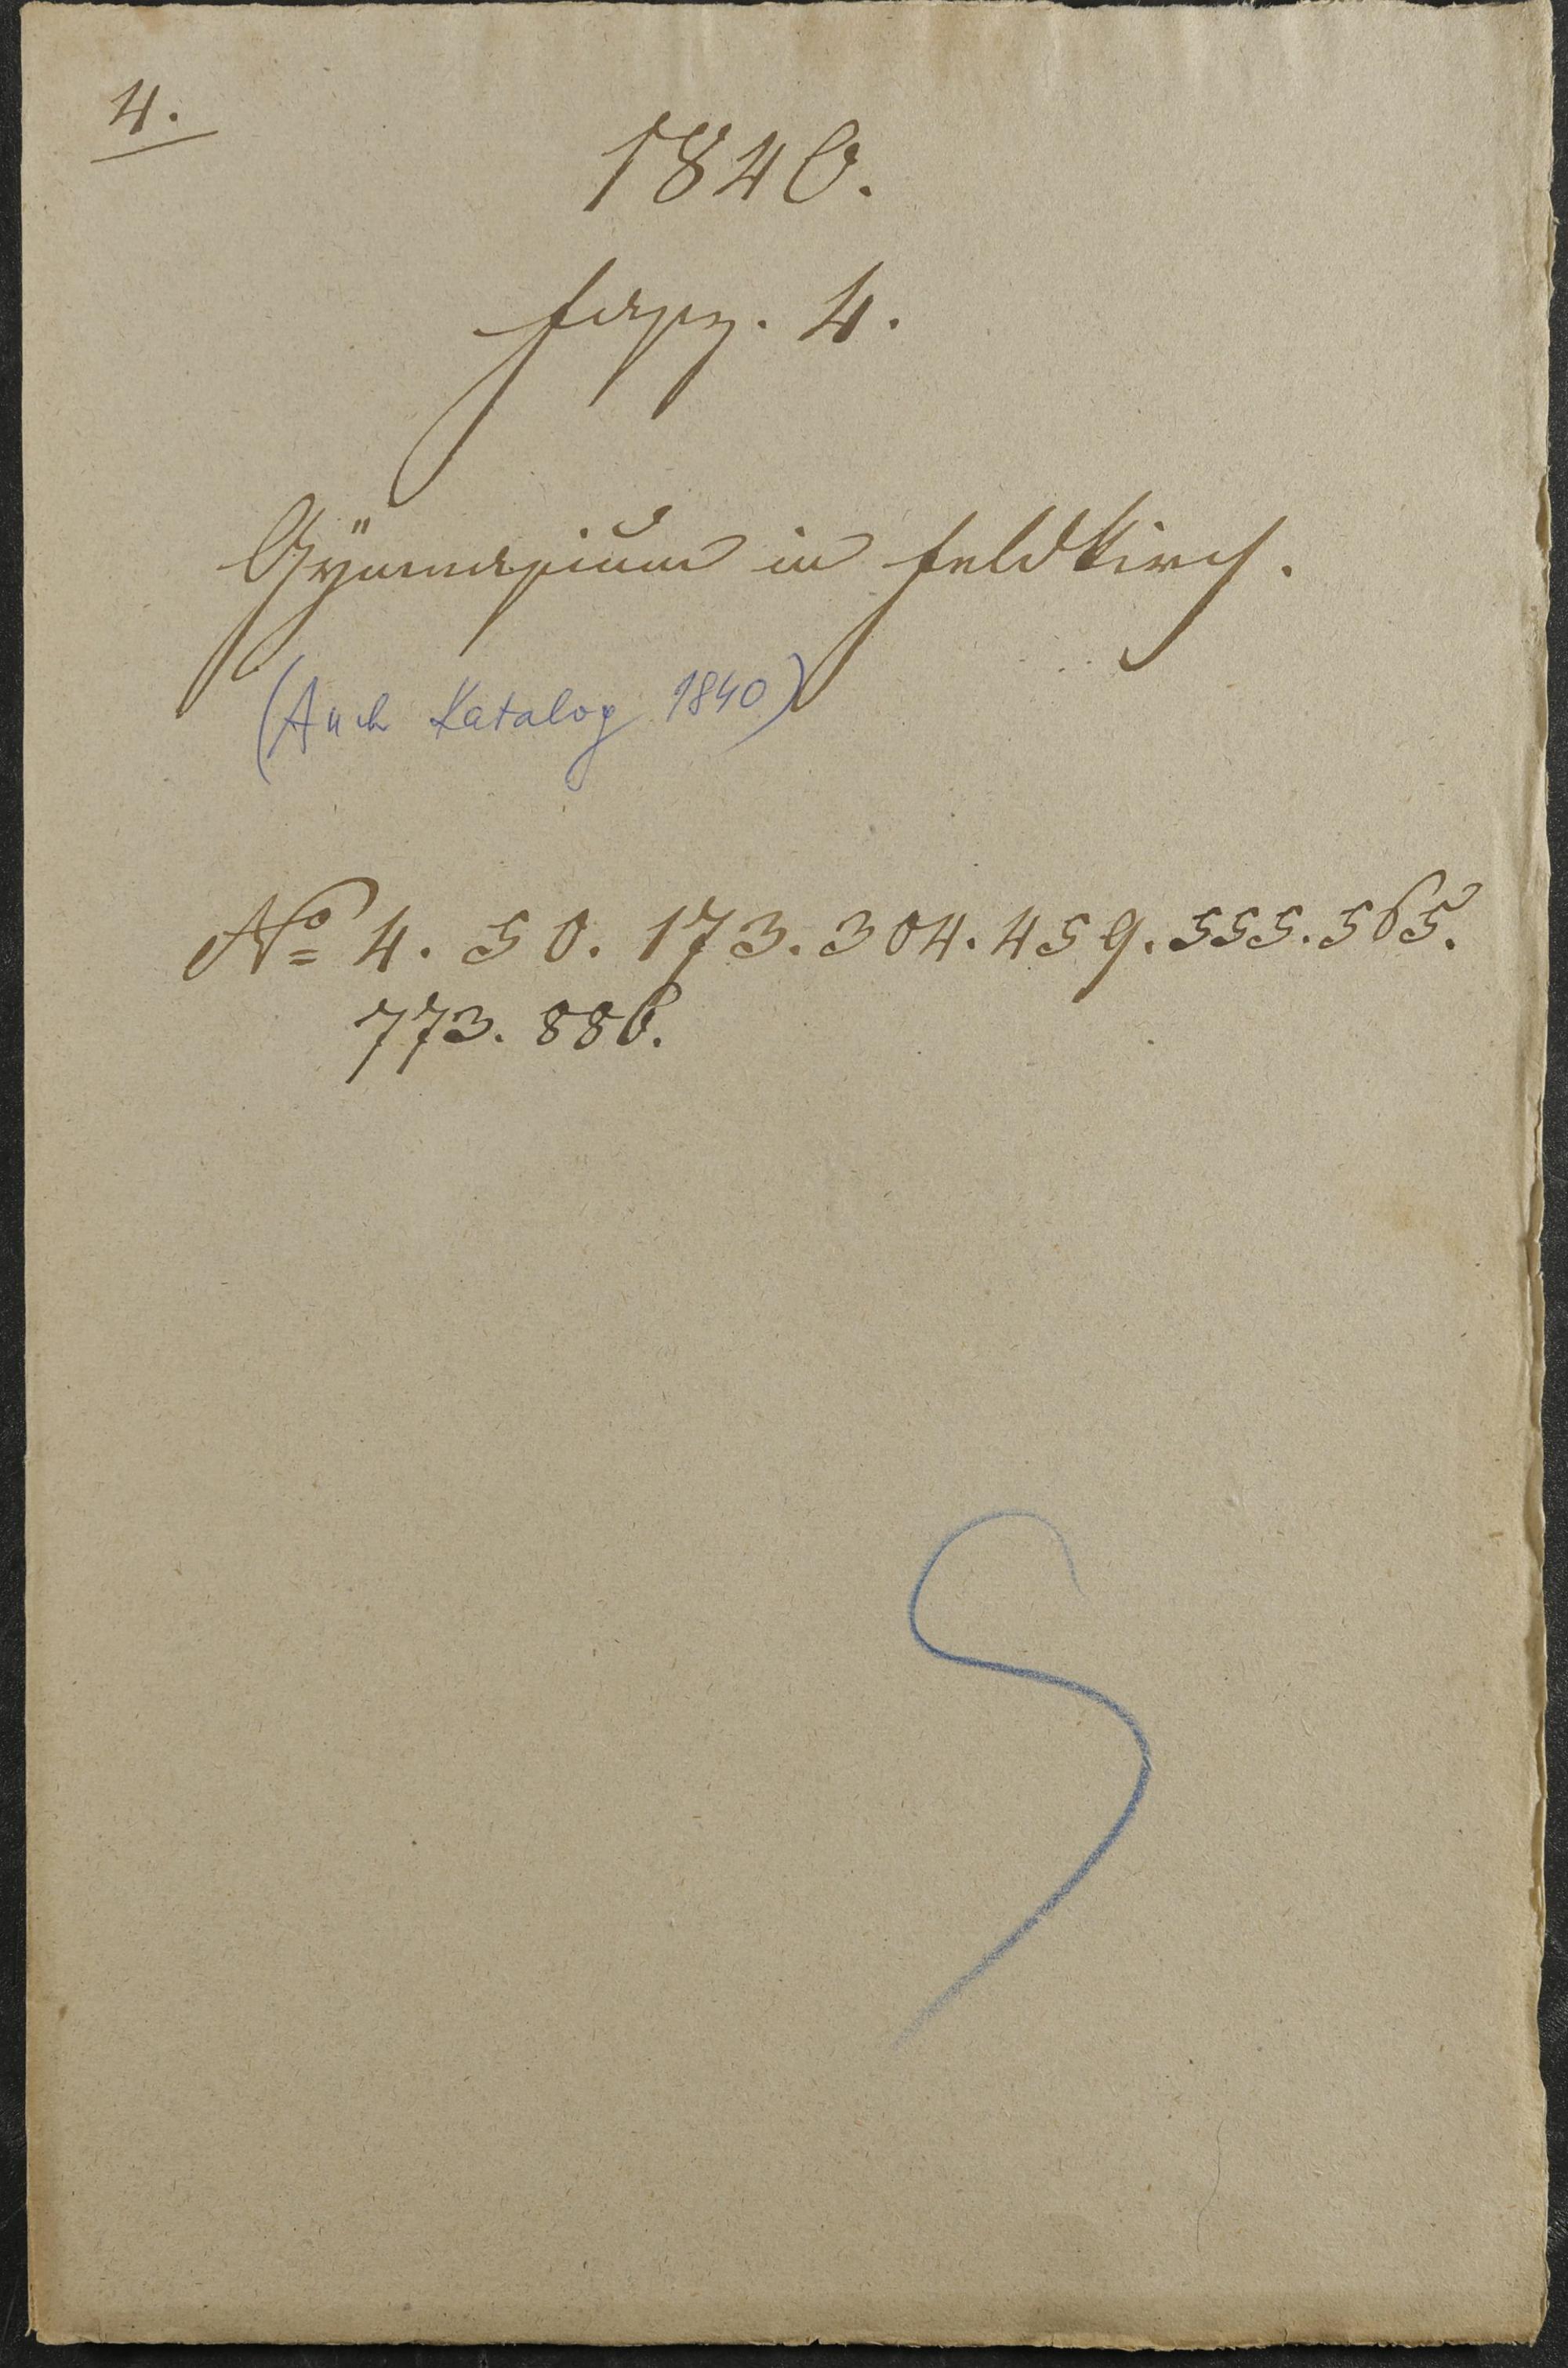 4.
1840.
Fasz. 4.
Gÿmnasium in Feldkirch.
(Auch Katalog 1840)
No 4. 50. 173. 304. 459. 555. 565.
773. 886.